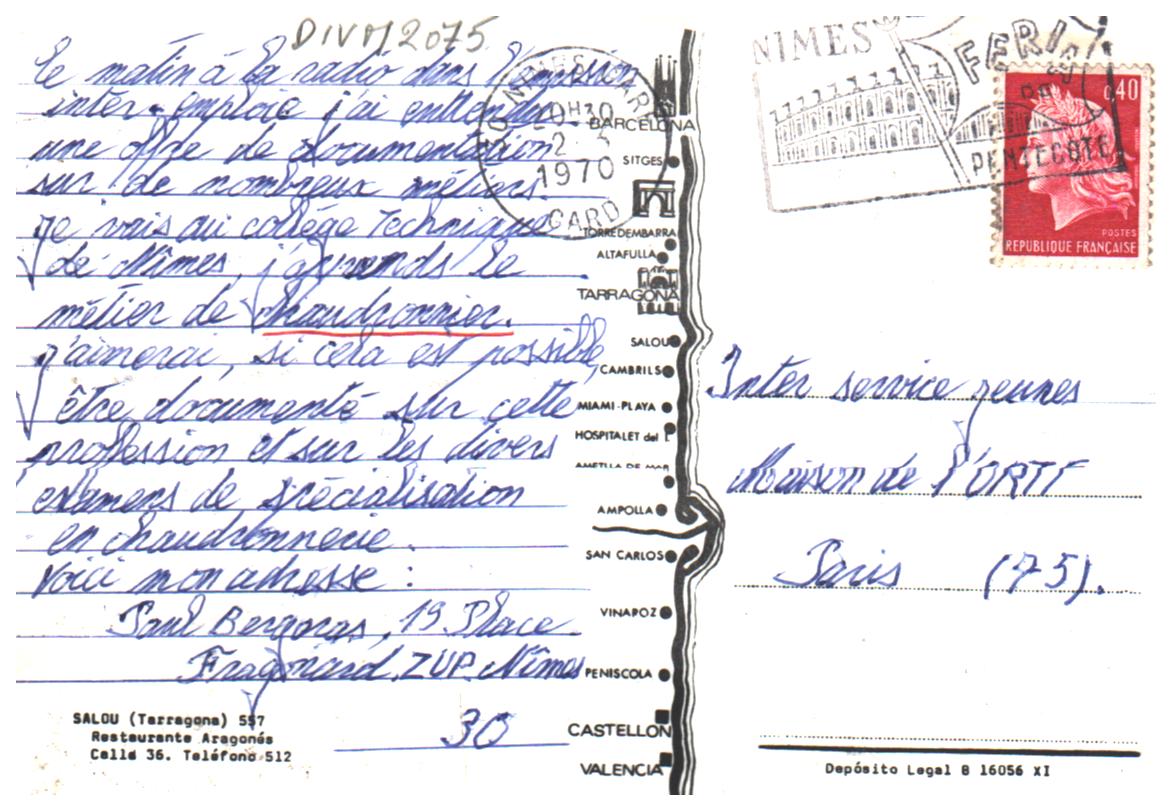 DIVM2075
Ce matin à la radio dans l'émission
inter-emploie j'ai entendu
une offre de documentation
sur de nombreux métiers.
je vais au collège Technique
de Nîmes, j'apprends le
métier de chaudronnier.
j'aimerai, si cela est possible,
être documenté sur cette
profession et sur les divers
examens de spécialisation
en chaudronnerie.
Voici mon adresse :
Paul Bergoras, 19 Place
Fragonard, ZUP. Nîmes
30
SALOU (Tarragona) 557
Restaurante Aragonés
Calle 36. Teléfono 512
NIMES GARE
20H30
2
1970
GARD
BARCELONA
SITGES
TORREDEMBARRA
ALTAFULLA
TARRAGONA
SALOU
CAMBRILS
MIAMI-PLAYA
HOSPITALET del I.
AMETLLA DE MAR
AMPOLLA
SAN CARLOS
VINAROZ
PENISCOLA
CASTELLON
VALENCIA
NIMES
FERIA
DE
PENTECOTE
0,40
POSTES
REPUBLIQUE FRANÇAISE
Inter service jeunes
Maison de l'ORTF
Paris (75).
Depósito Legal B 16056 XI